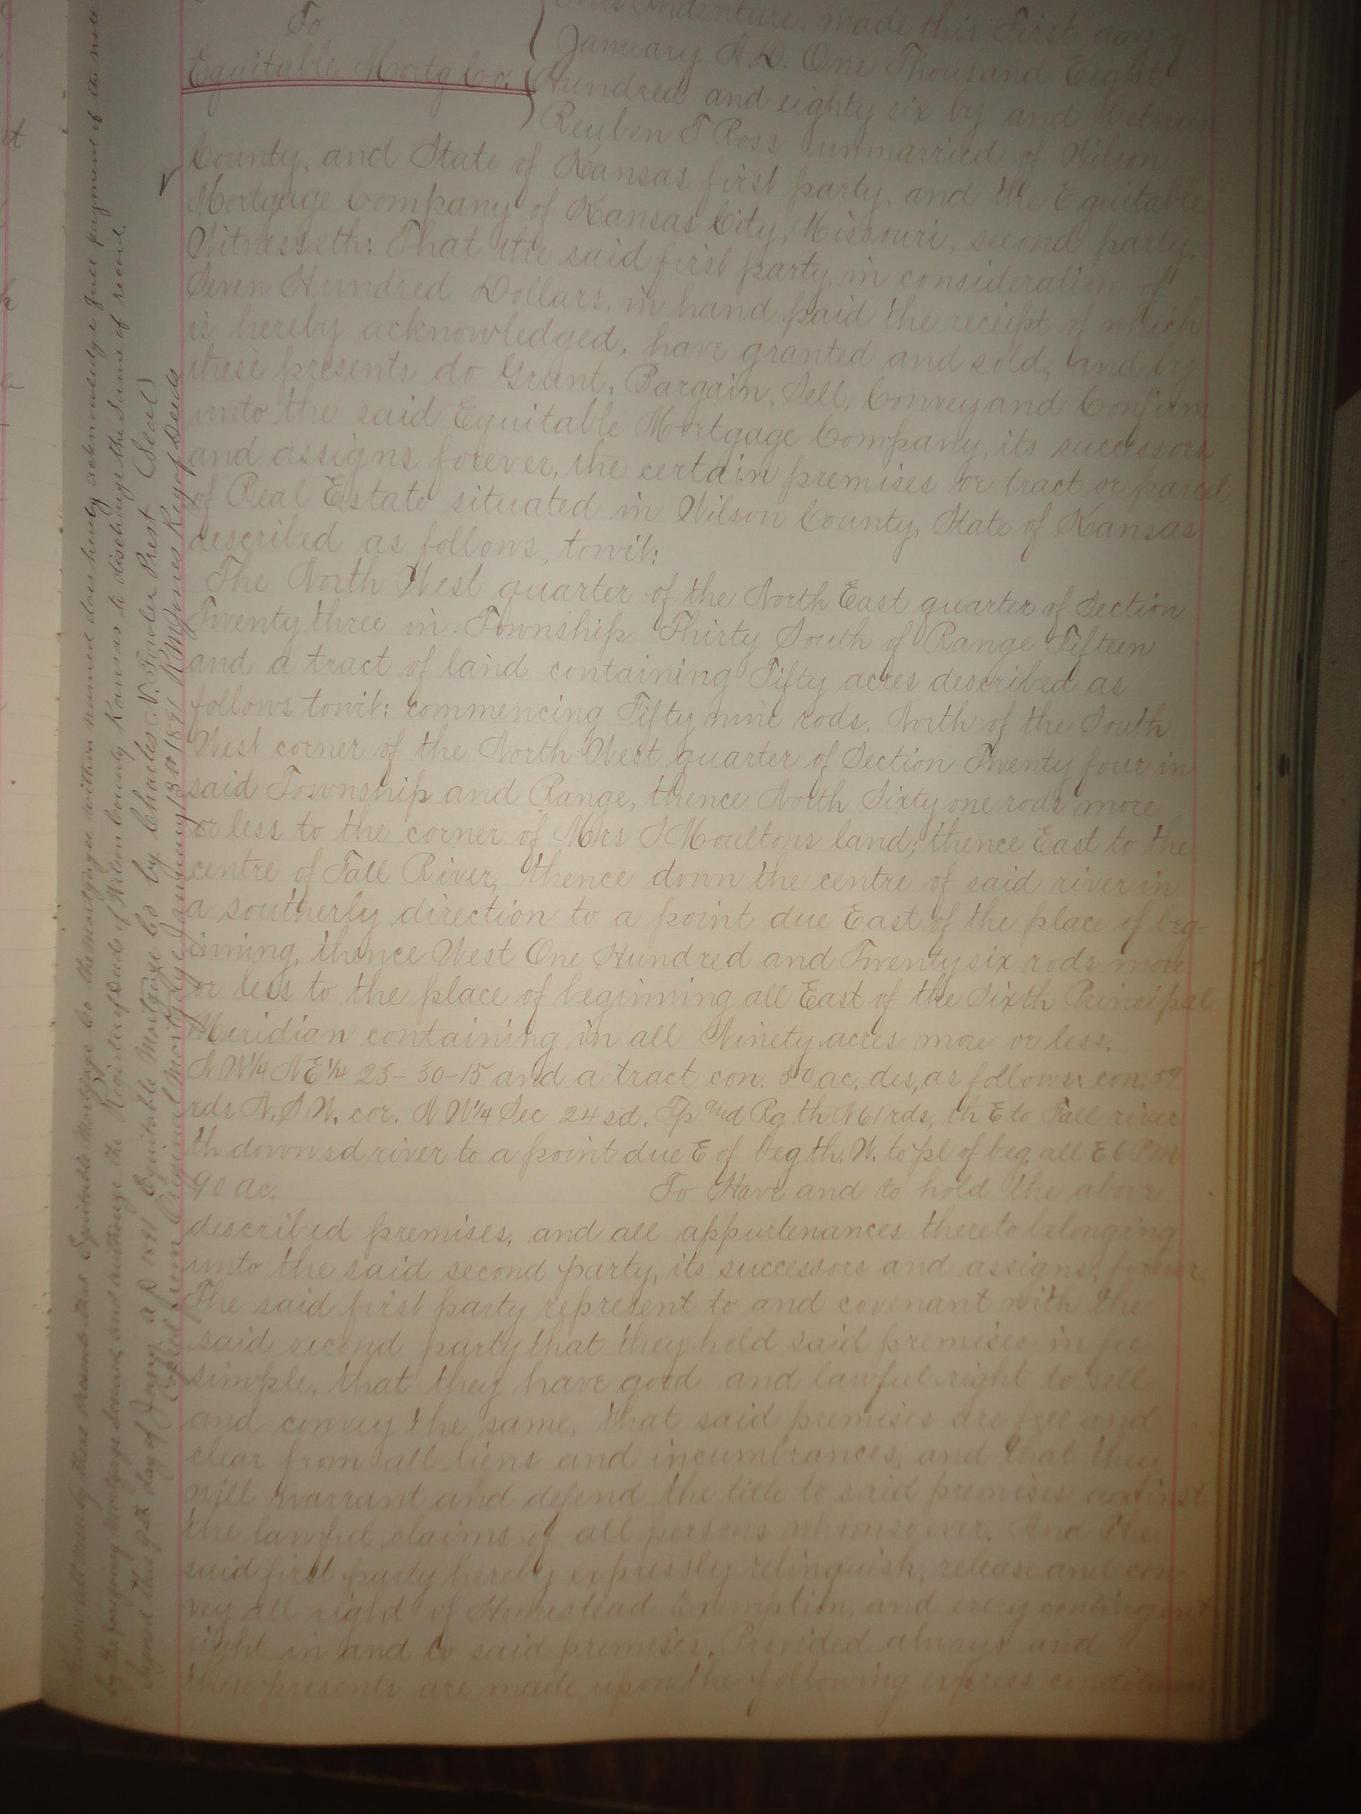 To
Equitable Mortg Co.
This Indenture, made this First day of
January A.D. One Thousand Eight
Hundred and eighty six by and between
Reuben T Ross unmarried of Wilson
County, and State of Kansas first party, and the Equitable
Mortgage Company of Kansas City, Missouri, second party,
Witnesseth: That the said first party, in consideration of
Seven Hundred Dollars, in hand paid the receipt of which
is hereby acknowledged, have granted and sold, and by
these presents do Grant, Bargain, Sell, Convey and Confirm
unto the said Equitable Mortgage Company, its successors
and assigns forever, the certain premises or tract or parcel
of Real Estate situated in Wilson County, State of Kansas
described as follows, towit:
The North West quarter of the North East quarter of Section
Twenty three in Township Thirty South of Range Fifteen
and a tract of land containing Fifty acres described as
follows towit: commencing Fifty nine rods, North of the South
West corner of the North West quarter of Section Twenty four in
said Township and Range, thence North Sixty one rods more
or less to the corner of Mrs S Moultons land; thence East to the
centre of Fall River, thence down the centre of said river in
a southerly direction to a point due East of the place of beg-
inning, thence West One Hundred and Twenty six rods more
or less to the place of beginning all East of the Sixth Principal
Meridian containing in all Ninety acres more or less.
N W¼ N E¼ 23-30-15 and a tract con. 50 ac, des, as follows: con. 59
rds N. S W. cor. N W¼ Sec 24 sd. Tp and Rg th N 61 rds, th E to Fall river
th down sd river to a point due E of beg th. W. to pl of beg. all E 6 P.M.
90 ac. To Have and to hold the above
described premises, and all appurtenances thereto belonging
unto the said second party, its successors and assigns, forever.
The said first party represent to and covenant with the
said second party that they hold said premises in fee
simple, that they have good and lawful right to sell
and convey the same, that said premises are free and
clear from all liens and incumbrances, and that they
will warrant and defend the title to said premises against
the lawful claims of all persons whomsoever. And the
said first party hereby expressly relinquish, release and con-
vey all right of Homestead Exemption, and every contingent
right in and to said premises. Provided always and
these presents are made upon the following express conditions
Know all men by these presents that Equitable Mortgage Co. the mortgagee within named does hereby acknowledge full payment of the note
by the foregoing Mortgage secured, and authorize the Register of Deeds of Wilson County Kansas to discharge the same of record.
Signed this 9th day of Jany A D 1891 Equitable Mortgage Co by Charles N. Fowler Prest (Seal)
Copied from Original Mortgage January 13th 1891 R M Jones Reg of Deeds